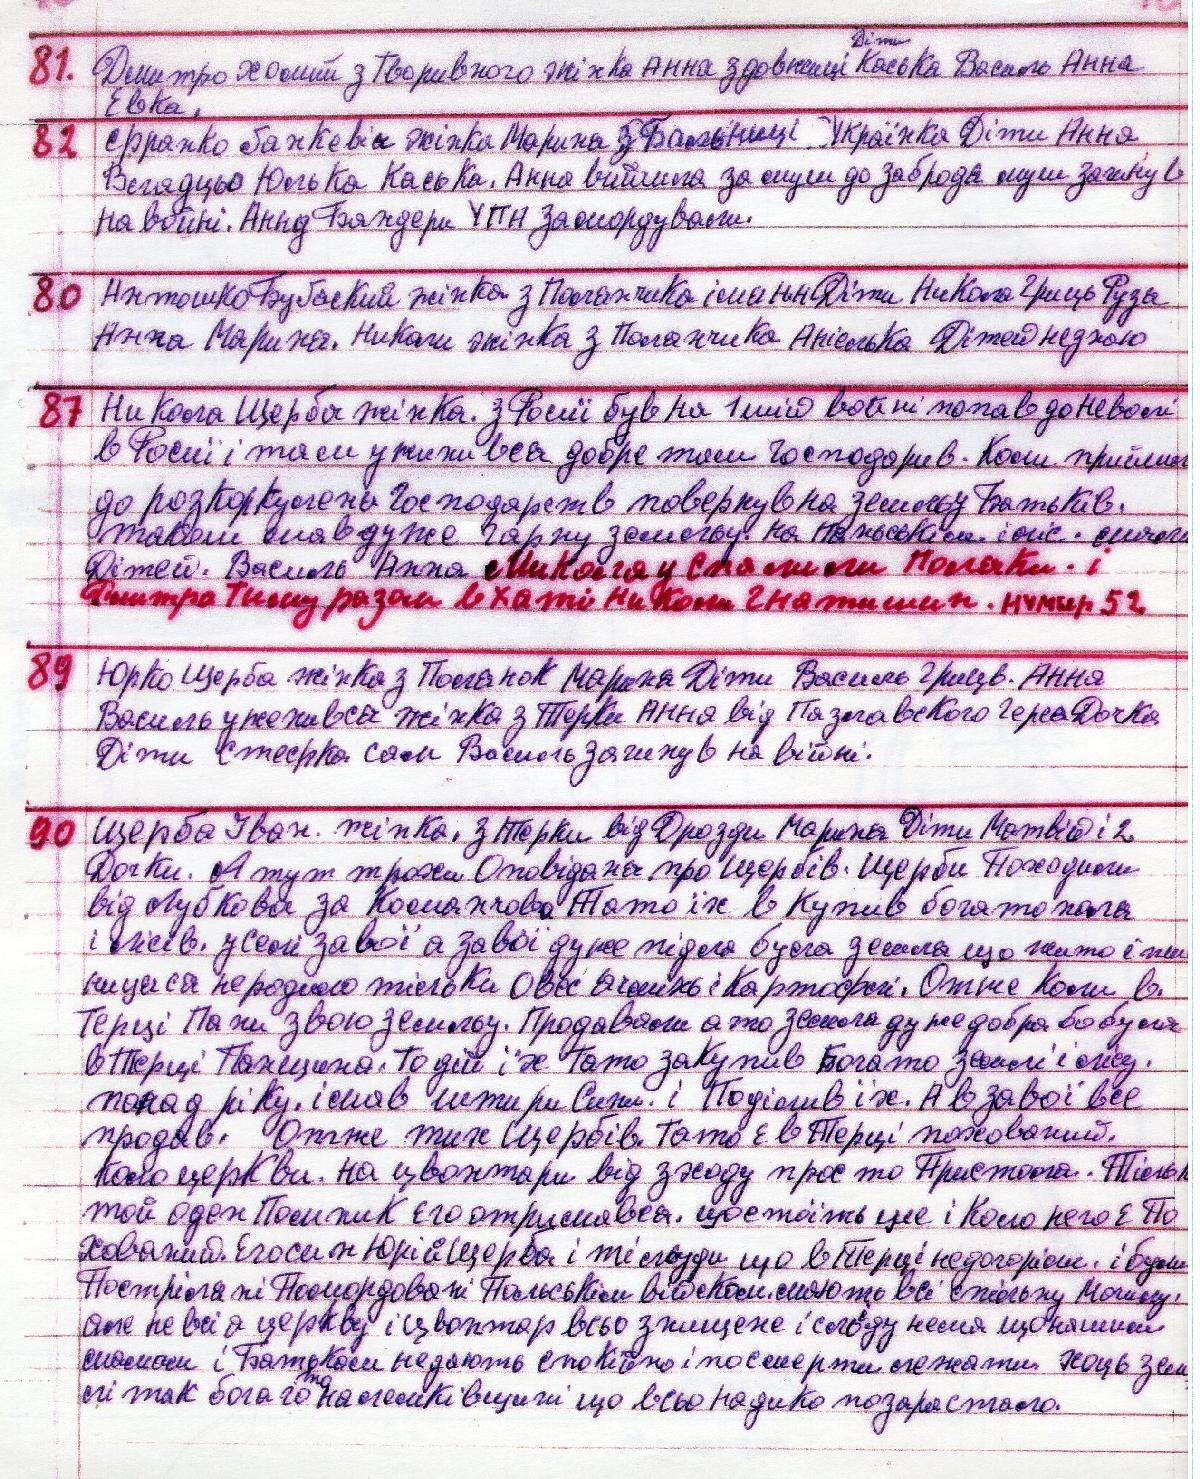 81. Дмитро Хомит з Творивного жінка Анна з довжиці Діти Каська Василь Анна
Евка.
82 Франко банкевич жінка Марина з Бальниці Українка Діти Анна
Владцьо Юлька Каська. Анна війшла за муш до заброда муш загинув
на войні. Анну Бандери УПА замордували.
80 Антошко Бубаский жінка з Поланчика іманн Діти Никола Гриць Рузя
Анна Марина. Николи жінка з Поланчика Анєлька Дітей незнаю
87 Никола Щерба жінка. з Росиї був на 1шій войні попав до неволі
в Росиї і там уженився добре там господарив. Коли прийшло
до розкоркуленя господарств повернув на земльу Батьків.
також мав дуже гарну земльу. на Паньськім і ліс.
Дітей. Василь Анна Миколау Спалили Поляки. і
Дмитра Тиму разом в хаті Николи Гнатишин. нумир 52
89 Юрко Щерба жінка з Поланок Марина Діти Василь Грицв. Анна
Василь уженився жінка з Терки Анна від Пазлавского Гереа Дочка
Діти Стефка сам Василь загинув на війні.
90 Щерба Іван. жінка. з Терки від Дрозди Марина Діти Матвій і 2
Дочки. А тут трохи Оповіданя про Щербів. Щерби Походили
від Лубкова за Команчова Тато їх в Купив богато поля
і лісів. у селі завої а завої дуже підла була земля що жито і пше
ницися не родило тільки Овес ячмінь і Картофлі. Отже Коли в.
Терці Пани звою земльу. Продавали а то земля дуже добра бо була
в Терці Панщина. Тоді їх Тато закупив Богато землі і лісу.
понад ріку. і мав штири Сини. і Поділив їх. А в завої все
продав. Отже тих Щербів. Тато є в Терці похований.
коло церкви. на цвонтари від зходу просто Пристола. Тільк
той оден Помник Его отримався. що стоїть ще і Коло него є По
хований. Его син Юрій Щерба і ті люди що в Терці недогоріли. і були
Постріляні Помордовані Польськім військом. мають всі спільну Могилу.
але не вся церкву і цвонтар всьо знищене і сліду нема що нашим
мамам і Батькам недають спокійно і посмерти лежати. хоць зем
лі так богато на лемківщині що всьо надико позарастало.